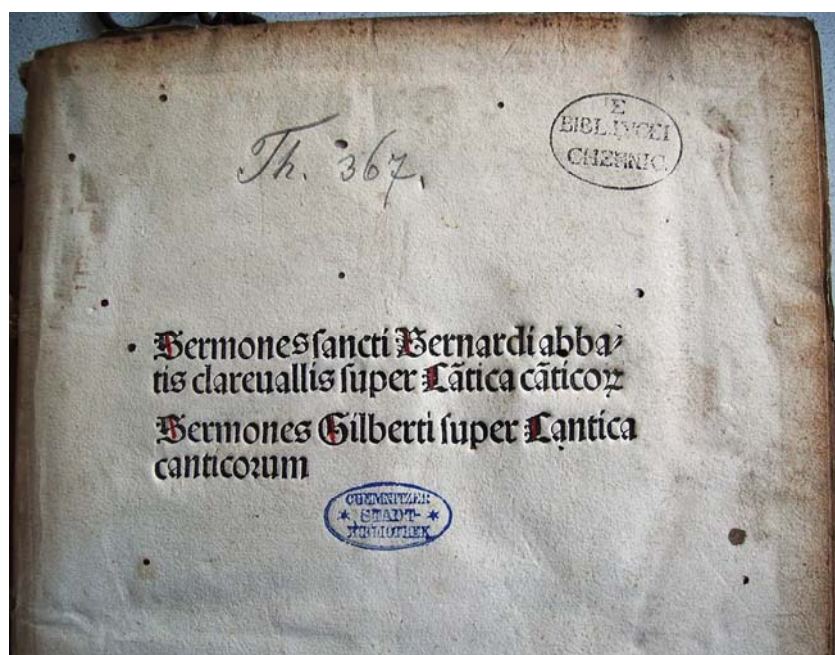 Th. 367.
E
BIBL. LYCEI
CHEMNIC.
Sermones sancti Bernardi abba⸗
tis clareuallis super Cãtica cãticoꝝ
Sermones Gilberti super Cantica
canticorum
CHEMNITZER
* STADT- *
BIBLIOTHEK